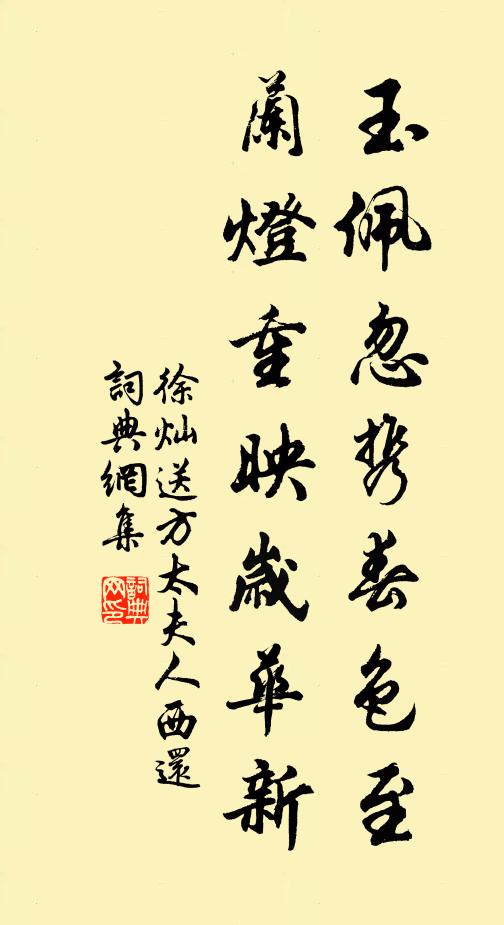 玉佩忽携春色至
蘭燈重映歲華新
徐灿送方太夫人西還
詞典網集
詞典网印